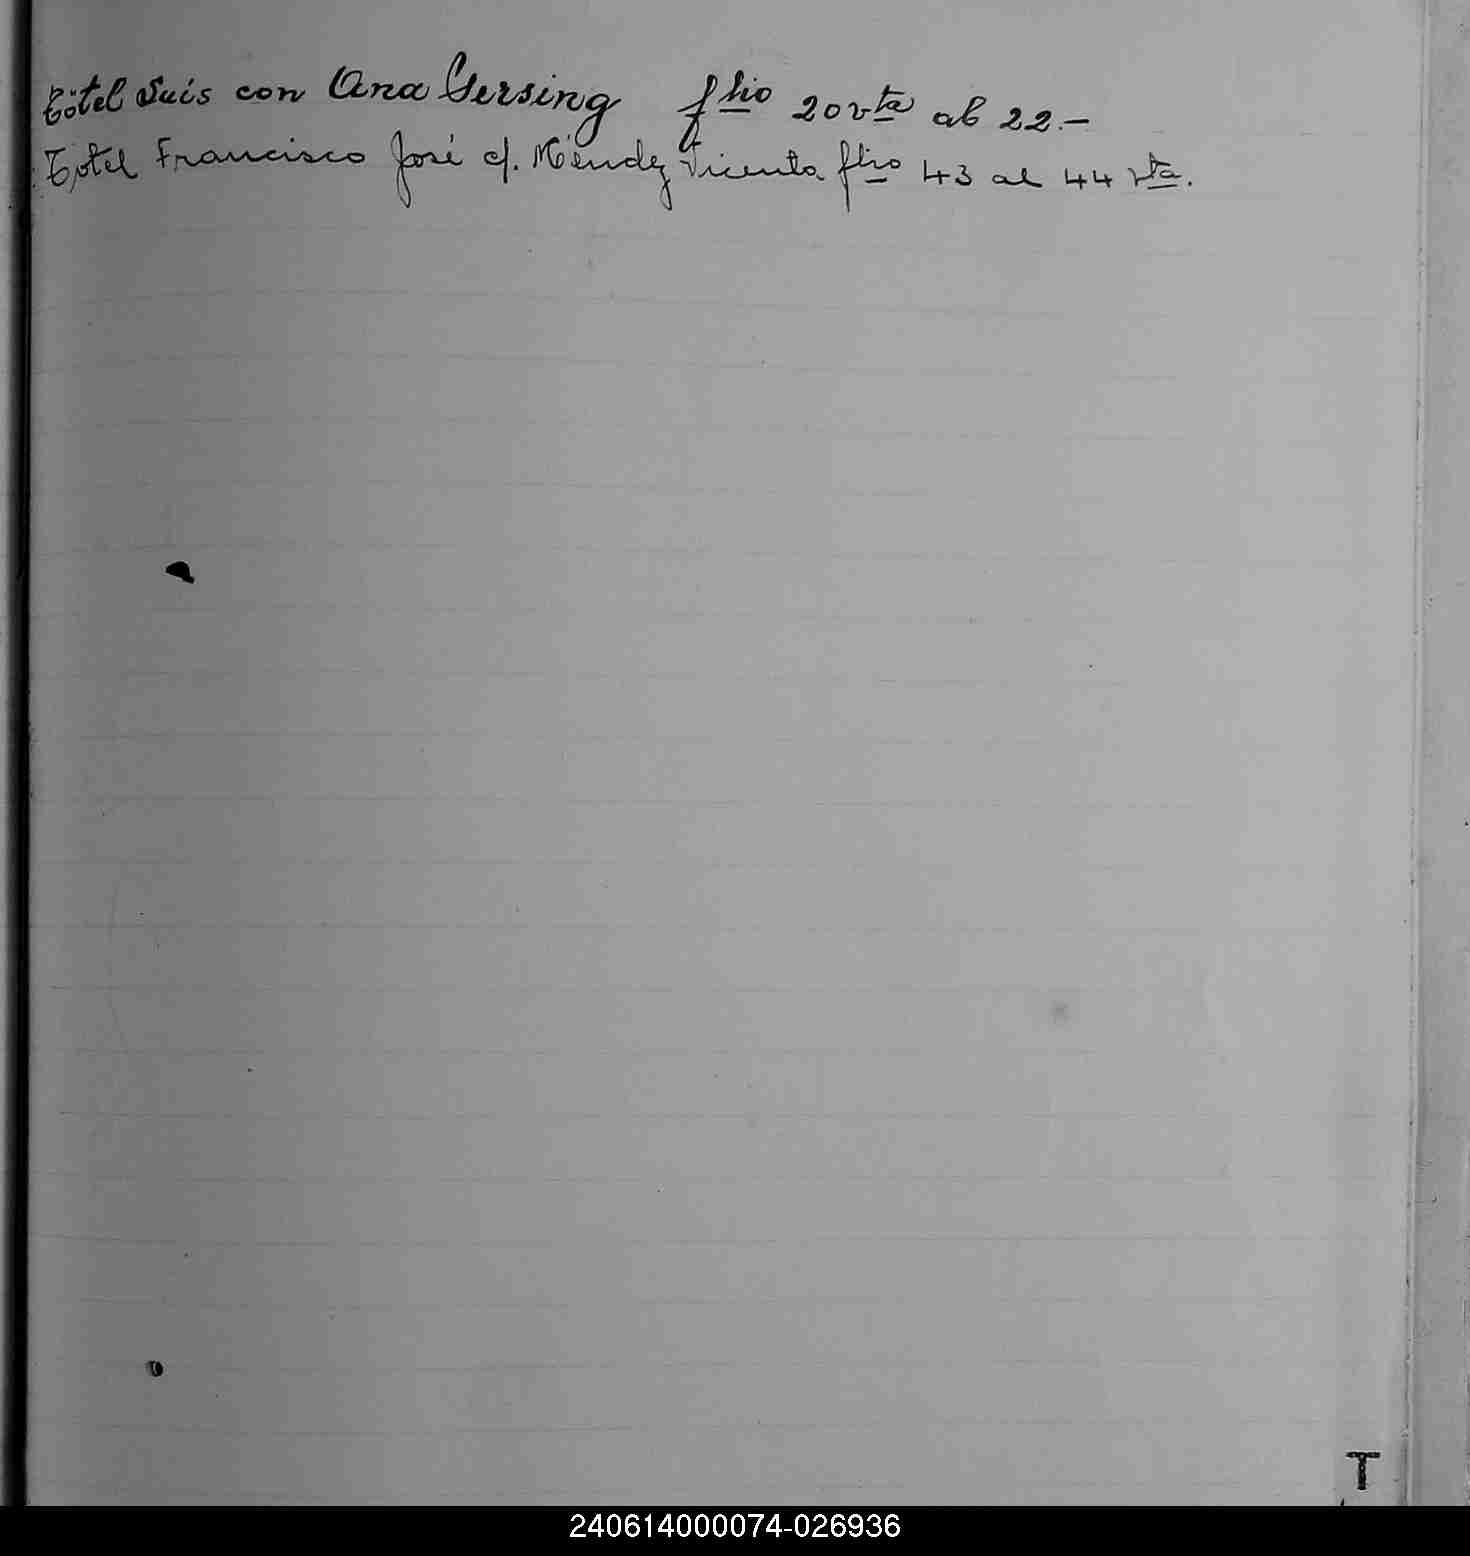 Tötel Luis con Ana Gersing flio 20 vta al 22.-
Totel Francisco José c/. Méndez Vicenta flio 43 al 44 vta.
T
240614000074-026936